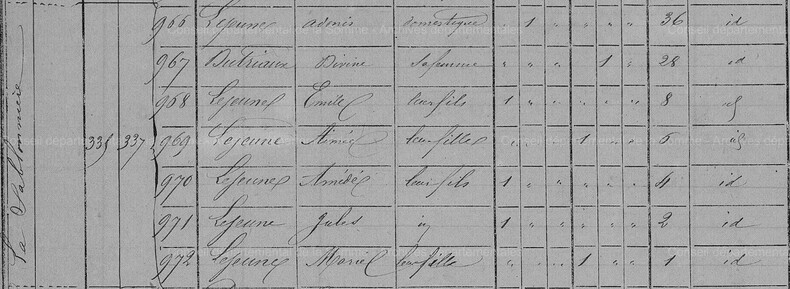 La Sablonnière
335 337
966 Lejeune adonis domestique " 1 " " " " 36 id
967 Dutriaux Divine sa femme " " " " 1 " 28 id
968 Lejeune Emile leur fils 1 " " " " " 8 id
969 Lejeune Aimée leur fille " " " 1 " " 5 id
970 Lejeune Amédée leur fils 1 " " " " " 4 id
971 Lejeune Jules id 1 " " " " " 2 id
972 Lejeune Marie leur fille " " " 1 " " 1 id